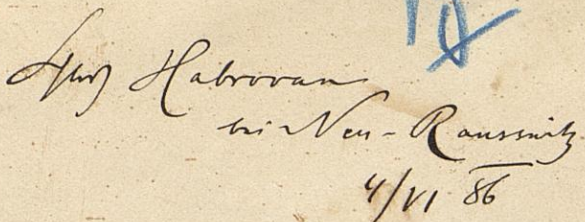 Habrovan
bei Neu-Raussnitz
4/VI 86